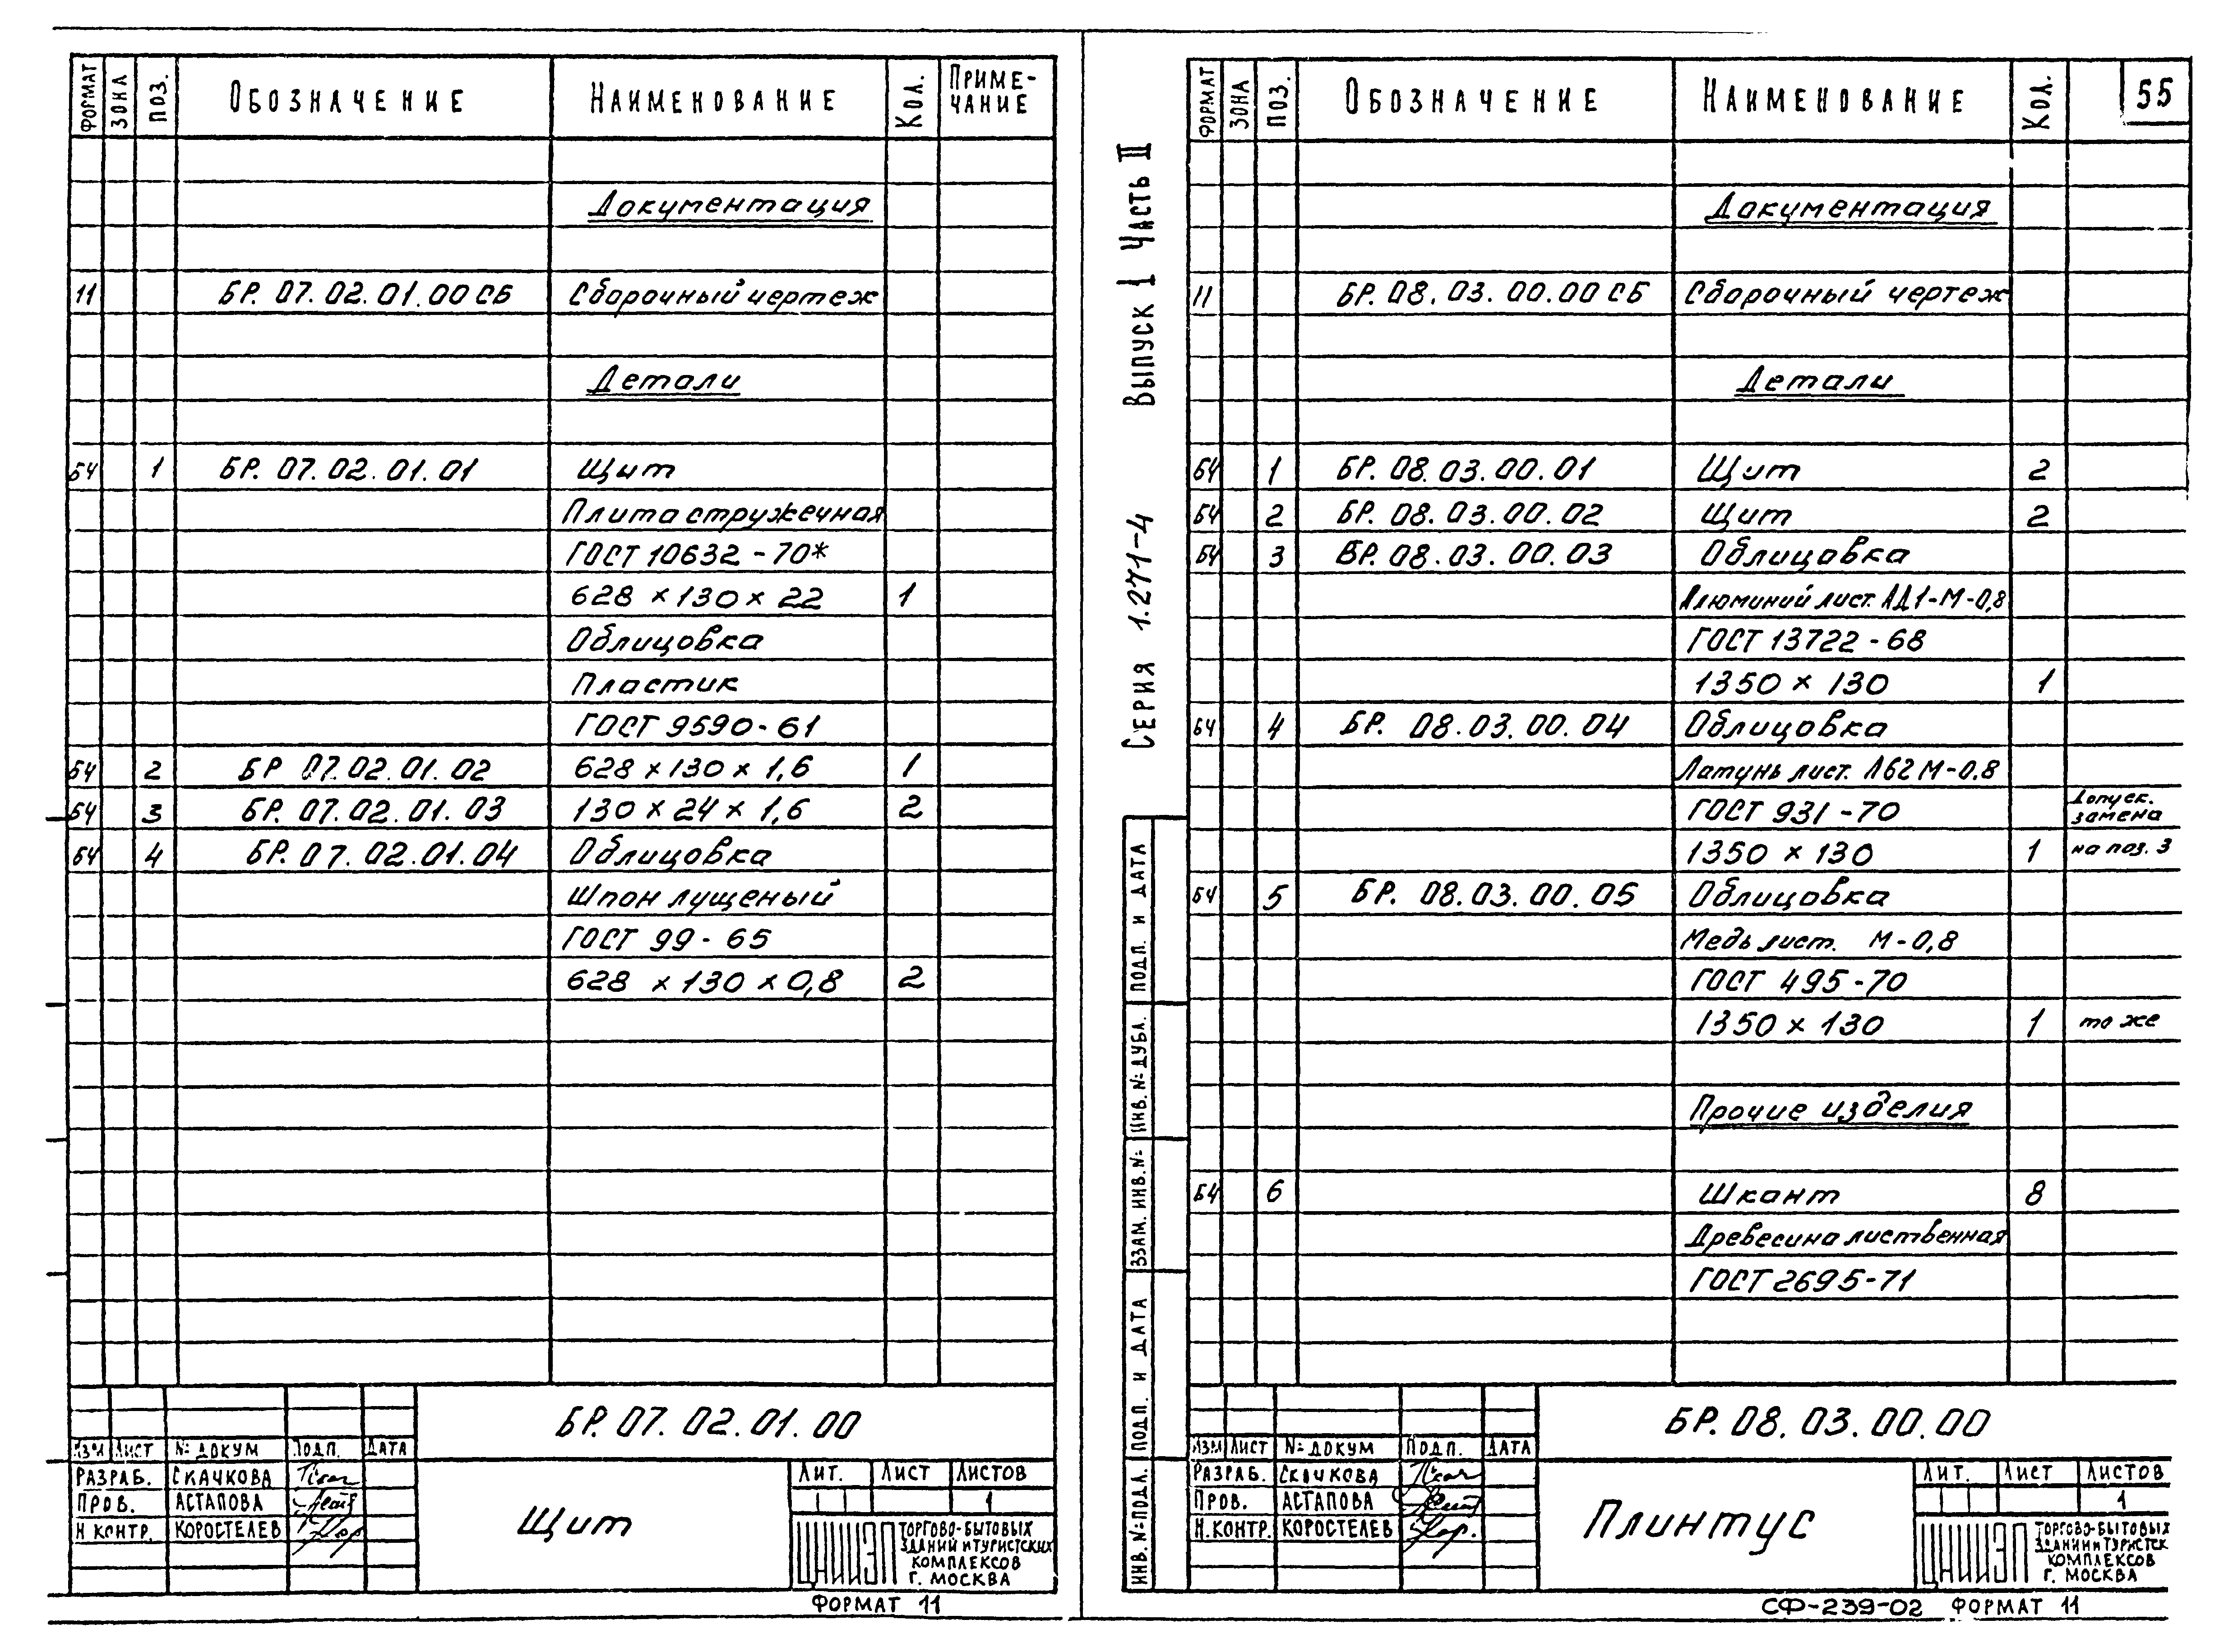 ФОРМАТ ЗОНА ПОЗ. ОБОЗНАЧЕНИЕ НАИМЕНОВАНИЕ КОЛ. ПРИМЕ-
ЧАНИЕ
Документация
11 БР. 07. 02. 01. 00 СБ Сборочный чертеж
Детали
БЧ 1 БР. 07. 02. 01. 01 Щит
Плита стружечная
ГОСТ 10632 - 70*
628 × 130 × 22 1
Облицовка
Пластик
ГОСТ 9590 - 61
БЧ 2 БР 07. 02. 01. 02 628 × 130 × 1,6 1
БЧ 3 БР. 07. 02. 01. 03 130 × 24 × 1,6 2
БЧ 4 БР. 07. 02. 01. 04 Облицовка
Шпон лущеный
ГОСТ 99 - 65
628 × 130 × 0,8 2
БР. 07. 02. 01. 00
ИЗМ ЛИСТ № ДОКУМ ПОДП. ДАТА
РАЗРАБ. СКАЧКОВА
ПРОВ. АСТАПОВА
Н КОНТР. КОРОСТЕЛЕВ
Щит
ЛИТ. ЛИСТ ЛИСТОВ
1
ЦНИИЭП ТОРГОВО-БЫТОВЫХ
ЗДАНИЙ И ТУРИСТСКИХ
КОМПЛЕКСОВ
Г. МОСКВА
ФОРМАТ 11
СЕРИЯ 1.271-4 ВЫПУСК 1 ЧАСТЬ II
ИНВ. № ПОДЛ. ПОДП. И ДАТА ВЗАМ. ИНВ. № ИНВ. № ДУБЛ. ПОДП. И ДАТА
55
ФОРМАТ ЗОНА ПОЗ. ОБОЗНАЧЕНИЕ НАИМЕНОВАНИЕ КОЛ.
Документация
11 БР. 08. 03. 00. 00 СБ Сборочный чертеж
Детали
БЧ 1 БР. 08. 03. 00. 01 Щит 2
БЧ 2 БР. 08. 03. 00. 02 Щит 2
БЧ 3 БР. 08. 03. 00. 03 Облицовка
Алюминий лист. АД1-М-0,8
ГОСТ 13722 - 68
1350 × 130 1
БЧ 4 БР. 08. 03. 00. 04 Облицовка
Латунь лист. Л62 М-0.8
ГОСТ 931 - 70 Допуск.
замена
1350 × 130 1 на поз. 3
БЧ 5 БР. 08. 03. 00. 05 Облицовка
Медь лист. М-0,8
ГОСТ 495 - 70
1350 × 130 1 то же
Прочие изделия
БЧ 6 Шкант 8
Древесина лиственная
ГОСТ 2695-71
БР. 08. 03. 00. 00
ИЗМ ЛИСТ № ДОКУМ ПОДП. ДАТА
РАЗРАБ. СКАЧКОВА
ПРОВ. АСТАПОВА
Н. КОНТР. КОРОСТЕЛЕВ
Плинтус
ЛИТ. ЛИСТ ЛИСТОВ
1
ЦНИИЭП ТОРГОВО-БЫТОВЫХ
ЗДАНИЙ И ТУРИСТСК
КОМПЛЕКСОВ
Г. МОСКВА
СФ-239-02 ФОРМАТ 11